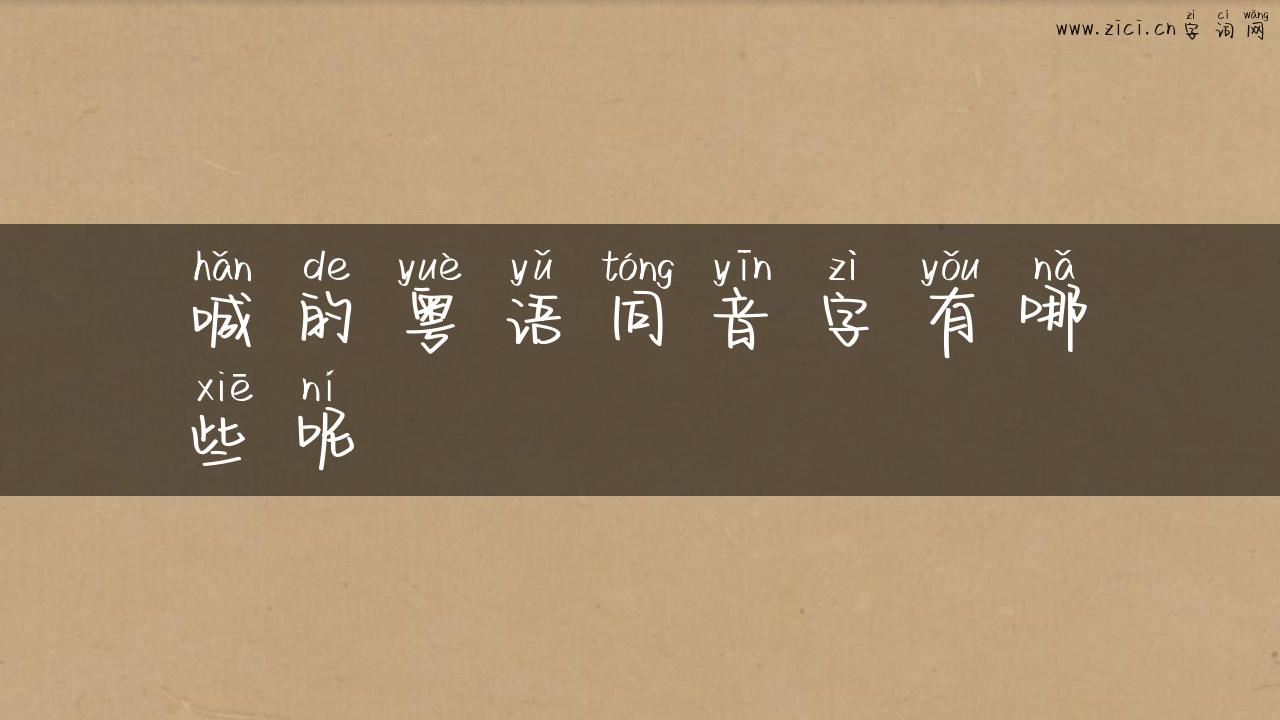 zì cí wǎng
www.zici.cn 字 词 网
hǎn de yuè yǔ tóng yīn zì yǒu nǎ
喊 的 粤 语 同 音 字 有 哪
xiē ní
些 呢